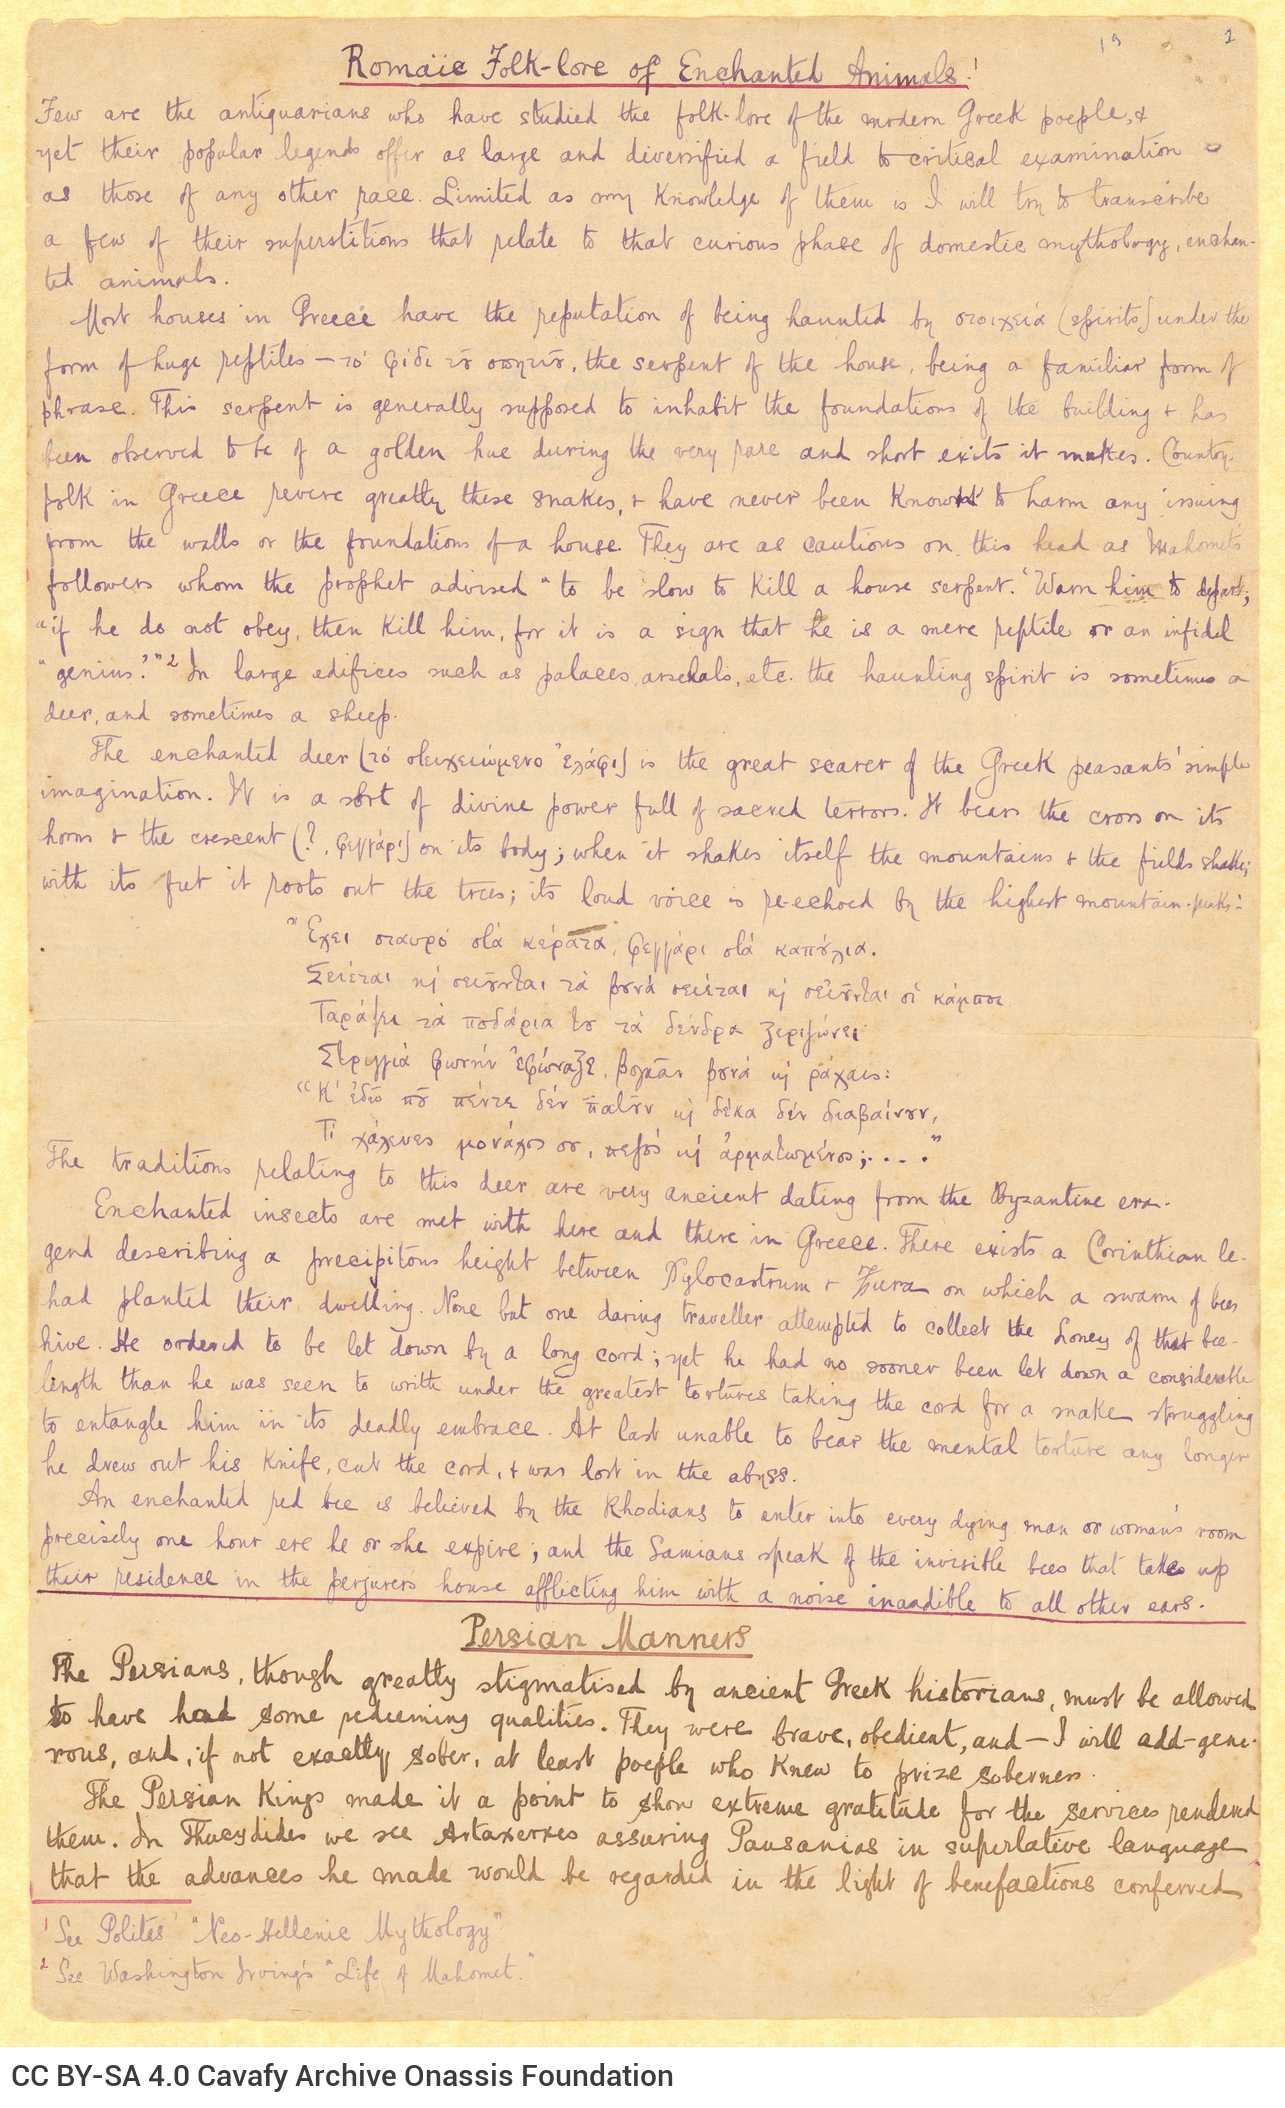 19 2
Romaïc Folk-lore of Enchanted Animals.¹
Few are the antiquarians who have studied the folk-lore of the modern Greek poeple, &
yet their popular legends offer as large and diversified a field to critical examination
as those of any other race. Limited as my knowledge of them is I will try to transcribe
a few of their superstitions that relate to that curious phase of domestic mythology, enchan-
ted animals.
Most houses in Greece have the reputation of being haunted by στοιχειά (spirits) under the
form of huge reptiles — τὸ φίδι τοῦ σπητιοῦ, the serpent of the house, being a familiar form of
phrase. This serpent is generally supposed to inhabit the foundations of the building & has
been observed to be of a golden hue during the very rare and short exits it makes. Country-
folk in Greece revere greatly these snakes, & have never been known to harm any issuing
from the walls or the foundations of a house. They are as cautious on this head as Mahomet's
followers whom the prophet advised "to be slow to kill a house serpent. 'Warn him to depart;
"if he do not obey, then kill him, for it is a sign that he is a mere reptile or an infidel
"genius.'"² In large edifices such as palaces, arsenals, etc. the haunting spirit is sometimes a
deer, and sometimes a sheep.
The enchanted deer (τὸ στειχειωμένο ἐλάφι) is the great scarer of the Greek peasants' simple
imagination. It is a sort of divine power full of sacred terrors. It bears the cross on its
horns & the crescent (?, φεγγάρι) on its body; when it shakes itself the mountains & the fields shake;
with its feet it roots out the trees; its loud voice is re-echoed by the highest mountain-peaks:
"Ἔχει σταυρό στὰ κέρατα, φεγγάρι στὰ καπούλια.
Σειέται κῂ σειοῦνται τὰ βουνά σειέται κῂ σειοῦνται οἱ κάμποι
Ταράζει τὰ ποδάρια του τὰ δένδρα ξεριζώνει
Στριγγιὰ φωνὴν ἐφώναξε, βογκᾶν βουνά κῂ ράχαις:
"Κ' ἐδῶ ποῦ πέντε δέν πατοῦν κῂ δέκα δέν διαβαίνουν,
Τί χάλευες μονάχος σου, πεζός κῂ ἀρματωμένος;...."
The traditions relating to this deer are very ancient dating from the Byzantine era.
Enchanted insects are met with here and there in Greece. There exists a Corinthian le-
gend describing a precipitous height between Xylocastrum & Zura on which a swarm of bees
had planted their dwelling. None but one daring traveller attempted to collect the honey of that bee-
hive. He ordered to be let down by a long cord; yet he had no sooner been let down a considerable
length than he was seen to writh under the greatest tortures taking the cord for a snake struggling
to entangle him in its deadly embrace. At last unable to bear the mental torture any longer
he drew out his knife, cut the cord, & was lost in the abyss.
An enchanted red bee is believed by the Rhodians to enter into every dying man or woman's room
precisely one hour ere he or she expire; and the Samians speak of the invisible bees that takes up
their residence in the perjurer's house afflicting him with a noise inaudible to all other ears.
Persian Manners
The Persians, though greatly stigmatised by ancient Greek historians, must be allowed
to have had some redeeming qualities. They were brave, obedient, and — I will add — gene-
rous, and, if not exactly sober, at least poeple who knew to prize soberness.
The Persian Kings made it a point to show extreme gratitude for the services rendered
them. In Thucydides we see Artaxerxes assuring Pausanias in superlative language
that the advances he made would be regarded in the light of benefactions conferred
¹ See Polites' "Neo-Hellenic Mythology"
² See Washington Irving's "Life of Mahomet."
CC BY-SA 4.0 Cavafy Archive Onassis Foundation